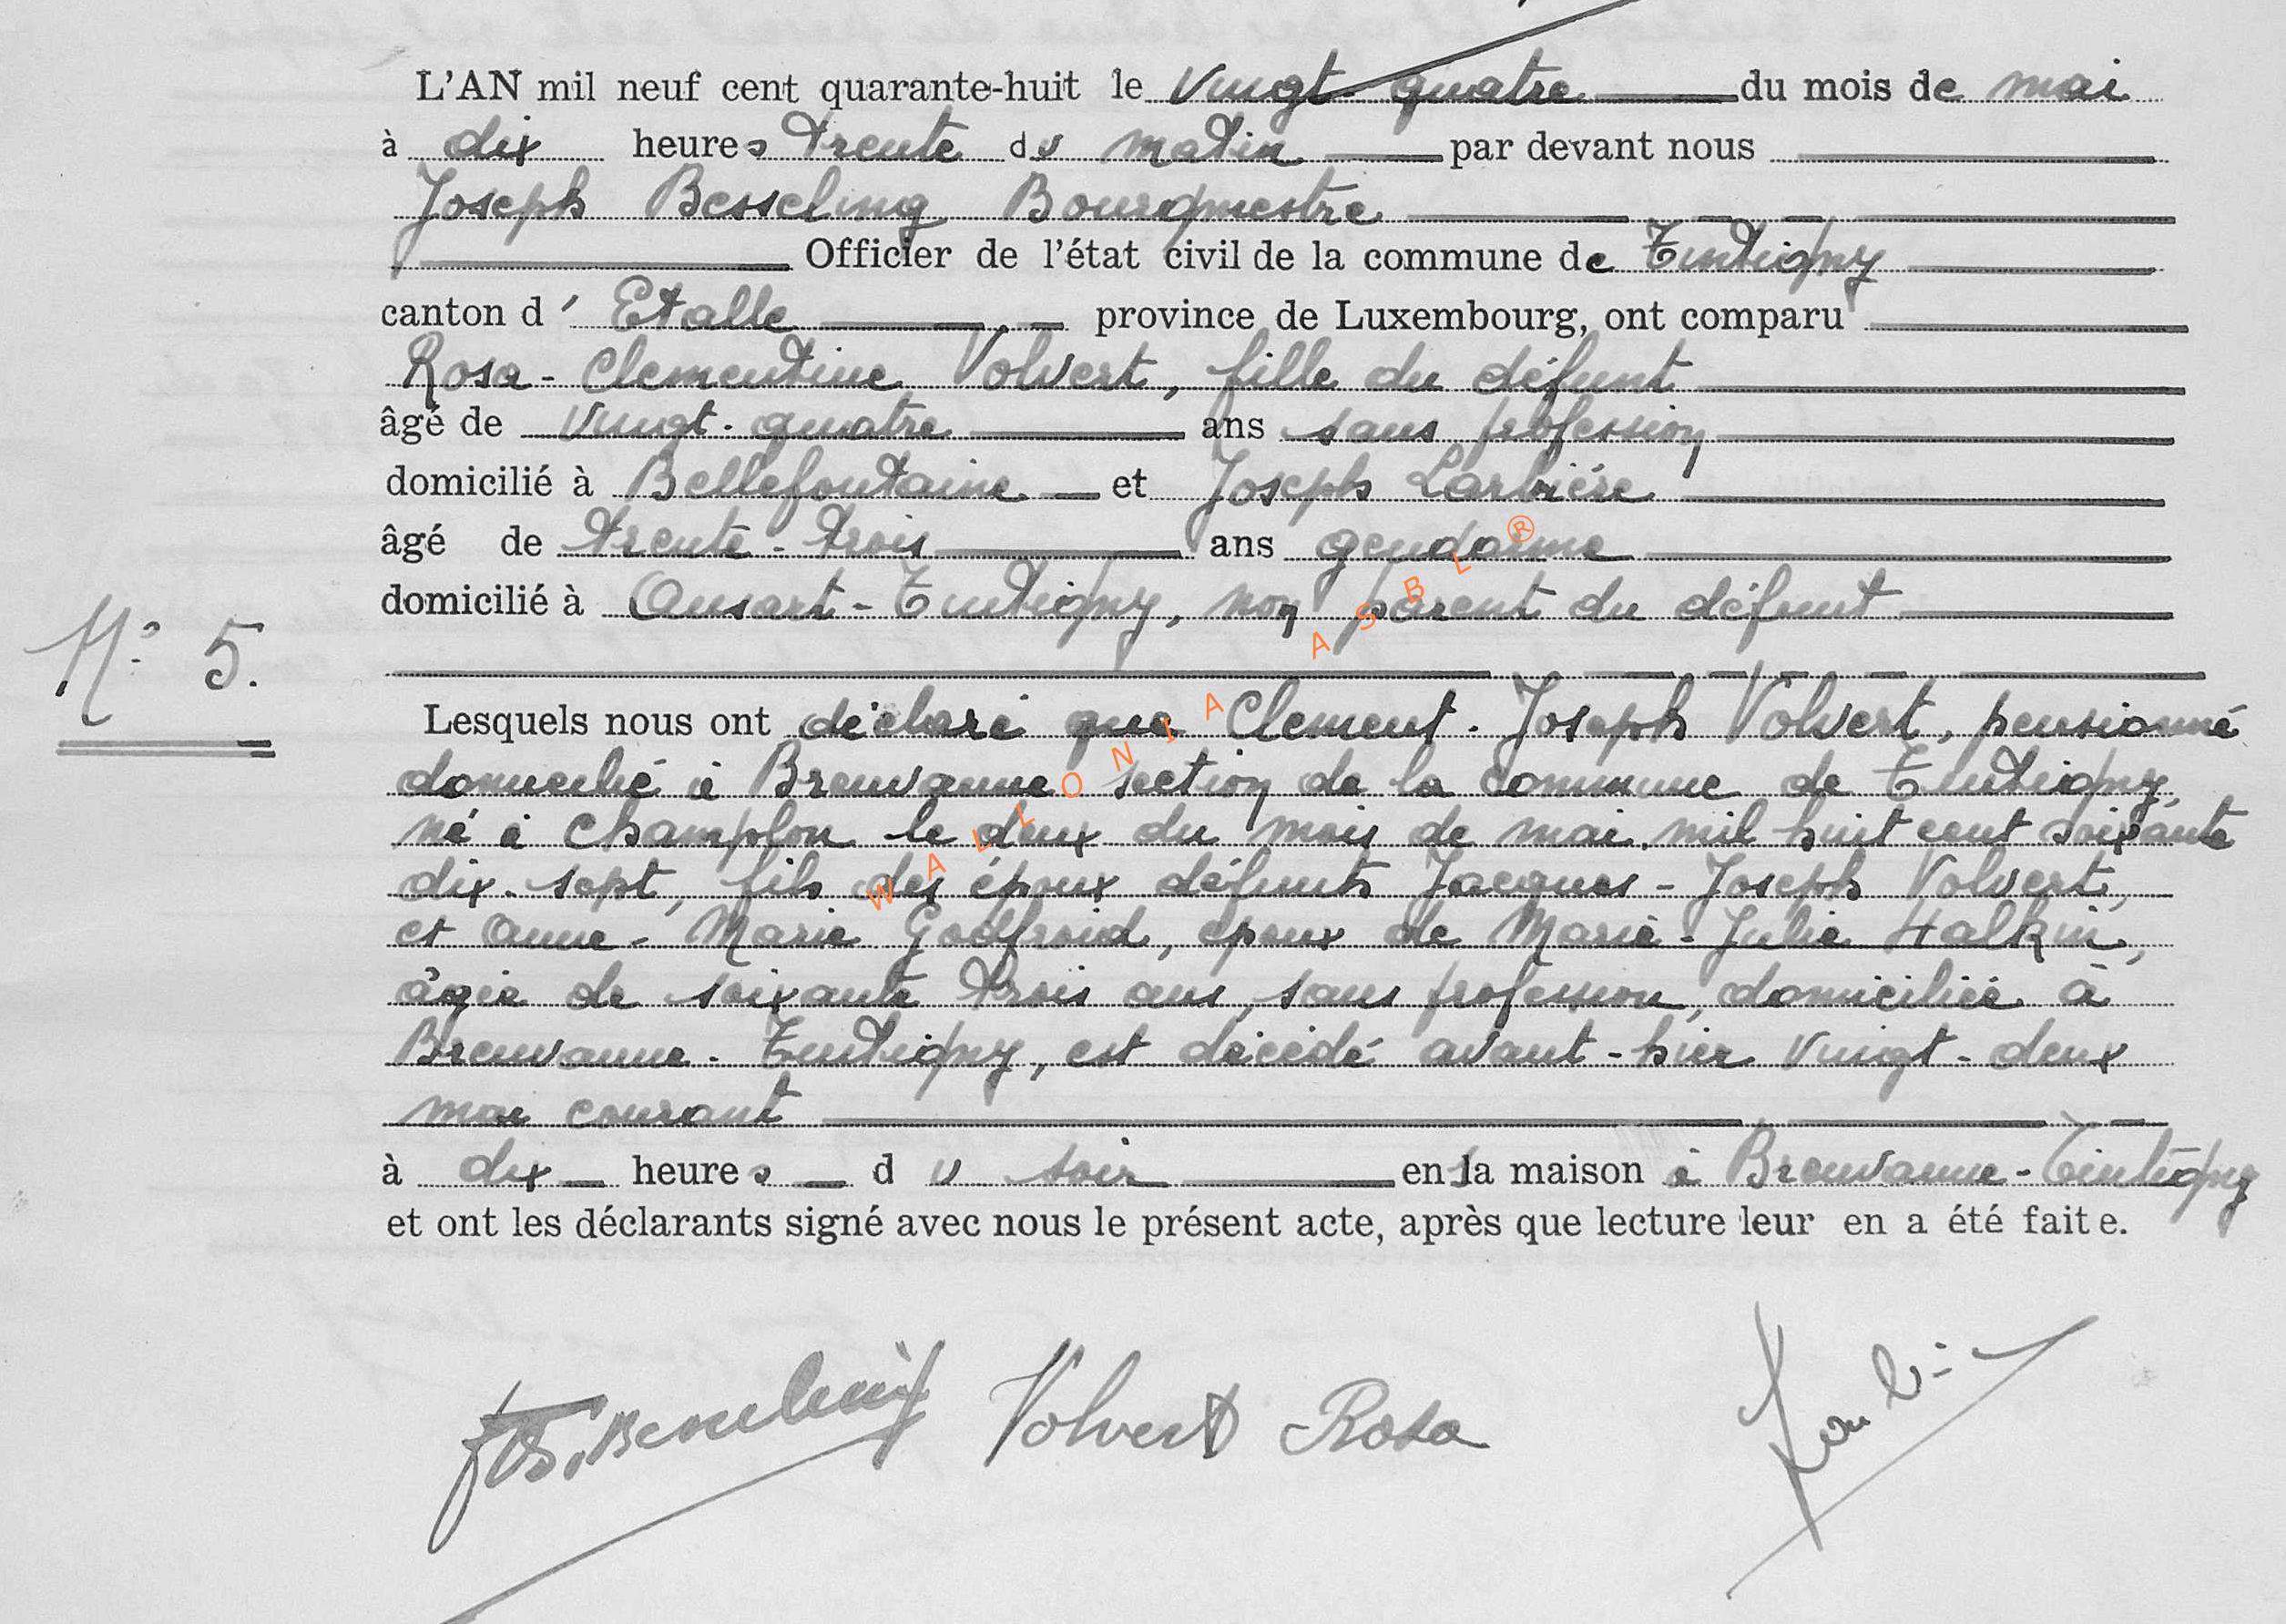 L'AN mil neuf cent quarante-huit le vingt quatre du mois de mai
à dix heures trente du matin par devant nous
Joseph Besseling Bourgmestre
Officier de l'état civil de la commune de Tintigny
canton d' Etalle province de Luxembourg, ont comparu
Rosa - Clementine Volvert, fille du défunt
âgé de vingt-quatre ans sans profession
domicilié à Bellefontaine et Joseph Larbière
âgé de trente-trois ans gendarme
domicilié à Ansart - Tintigny, non parent du défunt
N° 5.
Lesquels nous ont déclaré que Clement-Joseph Volvert, pensionné
domicilié à Breuvanne section de la commune de Tintigny,
né à Champlon le deux du mois de mai mil huit cent soixante
dix-sept, fils des époux défunts Jacques - Joseph Volvert,
et Anne - Marie Godfroid, époux de Marie - Julie Halkin,
âgée de soixante trois ans, sans profession, domiciliée à
Breuvanne - Tintigny, est décédé avant-hier vingt-deux
mai courant
à dix heures du soir en la maison à Breuvanne - Tintigny
et ont les déclarants signé avec nous le présent acte, après que lecture leur en a été faite.
Besseling Volvert Rosa
WALLONIA ASBL ®